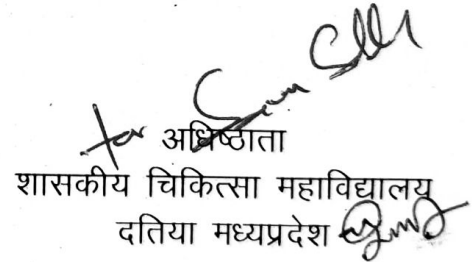 for अधिष्ठाता
शासकीय चिकित्सा महाविद्यालय
दतिया मध्यप्रदेश